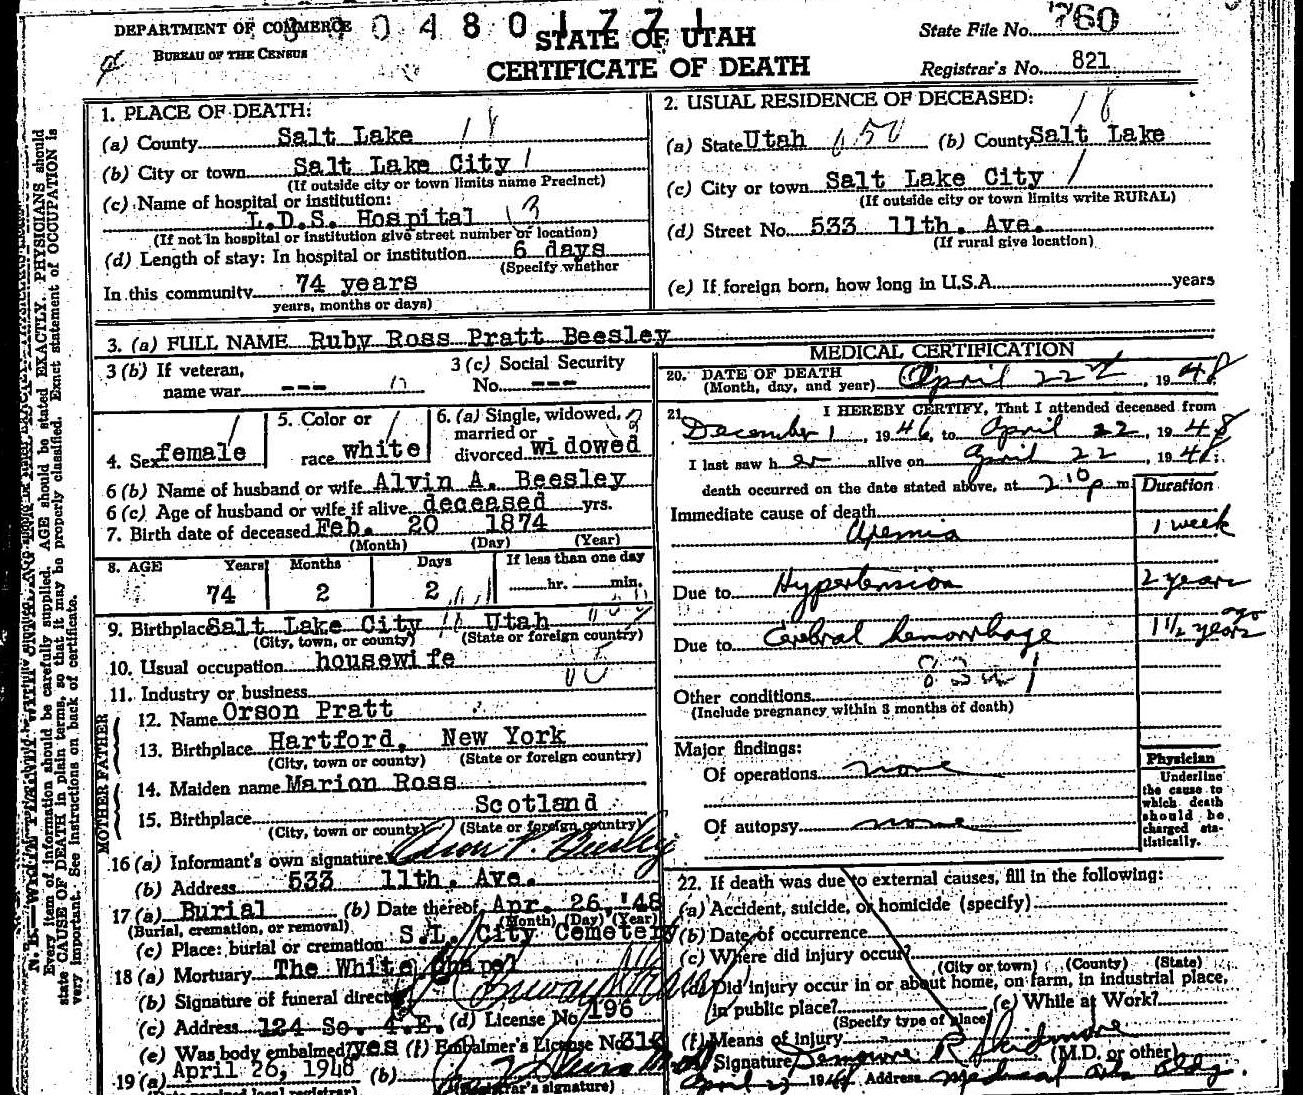 DEPARTMENT OF COMMERCE
BUREAU OF THE CENSUS
0 4 8 0 1 7 7 1
STATE OF UTAH
CERTIFICATE OF DEATH
State File No. 760
Registrar's No. 821
N. B.—WRITE PLAINLY WITH UNFADING
Every item of information should be carefully supplied. AGE should be stated EXACTLY. PHYSICIANS should
state CAUSE OF DEATH in plain terms, so that it may be properly classified. Exact statement of OCCUPATION is
very important. See instructions on back of certificate.
1. PLACE OF DEATH:
(a) County Salt Lake 18
(b) City or town Salt Lake City 1
(If outside city or town limits name Precinct)
(c) Name of hospital or institution:
L.D.S. Hospital 13
(If not in hospital or institution give street number or location)
(d) Length of stay: In hospital or institution 6 days
(Specify whether
In this community 74 years
years, months or days)
2. USUAL RESIDENCE OF DECEASED:
(a) State Utah 650 (b) County Salt Lake 18
(c) City or town Salt Lake City 1
(If outside city or town limits write RURAL)
(d) Street No. 533 11th. Ave.
(If rural give location)
(e) If foreign born, how long in U.S.A. years
3. (a) FULL NAME Ruby Ross Pratt Beesley
3 (b) If veteran,
name war ---
3 (c) Social Security
No. ---
4. Sex female
5. Color or
race white
6. (a) Single, widowed,
married or
divorced widowed
6 (b) Name of husband or wife Alvin A. Beesley
6 (c) Age of husband or wife if alive deceased yrs.
7. Birth date of deceased Feb. 20 1874
(Month) (Day) (Year)
8. AGE Years Months Days If less than one day
74 2 2 hr. min.
9. Birthplace Salt Lake City Utah
(City, town, or county) (State or foreign country)
10. Usual occupation housewife
11. Industry or business
FATHER
12. Name Orson Pratt
13. Birthplace Hartford, New York
(City, town or county) (State or foreign country)
MOTHER
14. Maiden name Marion Ross
15. Birthplace Scotland
(City, town or county) (State or foreign country)
16 (a) Informant's own signature Orson P. Beesley
(b) Address 533 11th. Ave.
17 (a) Burial (b) Date thereof Apr. 26, '48
(Burial, cremation, or removal) (Month) (Day) (Year)
(c) Place: burial or cremation S.L. City Cemetery
18 (a) Mortuary The White Chapel
(b) Signature of funeral director
(c) Address 124 So. 4.E. (d) License No. 196
(e) Was body embalmed? yes (f) Embalmer's License No. 315
19 (a) April 26, 1948 (b)
(Registrar's signature)
MEDICAL CERTIFICATION
20. DATE OF DEATH
(Month, day, and year) April 22nd, 1948
21. I HEREBY CERTIFY, That I attended deceased from
December 1, 1946, to April 22, 1948
I last saw her alive on April 22, 1948.
death occurred on the date stated above, at 2:10 p m
Duration
Immediate cause of death
Uremia 1 week
Due to Hypertension 2 years
Due to Cerebral hemorrhage 1 1/2 years ago
Other conditions
(Include pregnancy within 3 months of death)
Major findings:
Of operations none
Of autopsy none
Physician
Underline
the cause to
which death
should be
charged sta-
tistically.
22. If death was due to external causes, fill in the following:
(a) Accident, suicide, or homicide (specify)
(b) Date of occurrence
(c) Where did injury occur?
(City or town) (County) (State)
(d) Did injury occur in or about home, on farm, in industrial place,
in public place? (e) While at Work?
(Specify type of place)
(f) Means of injury
Signature Skidmore (M.D. or other)
April 23 1948 Address Medical Arts Bldg.